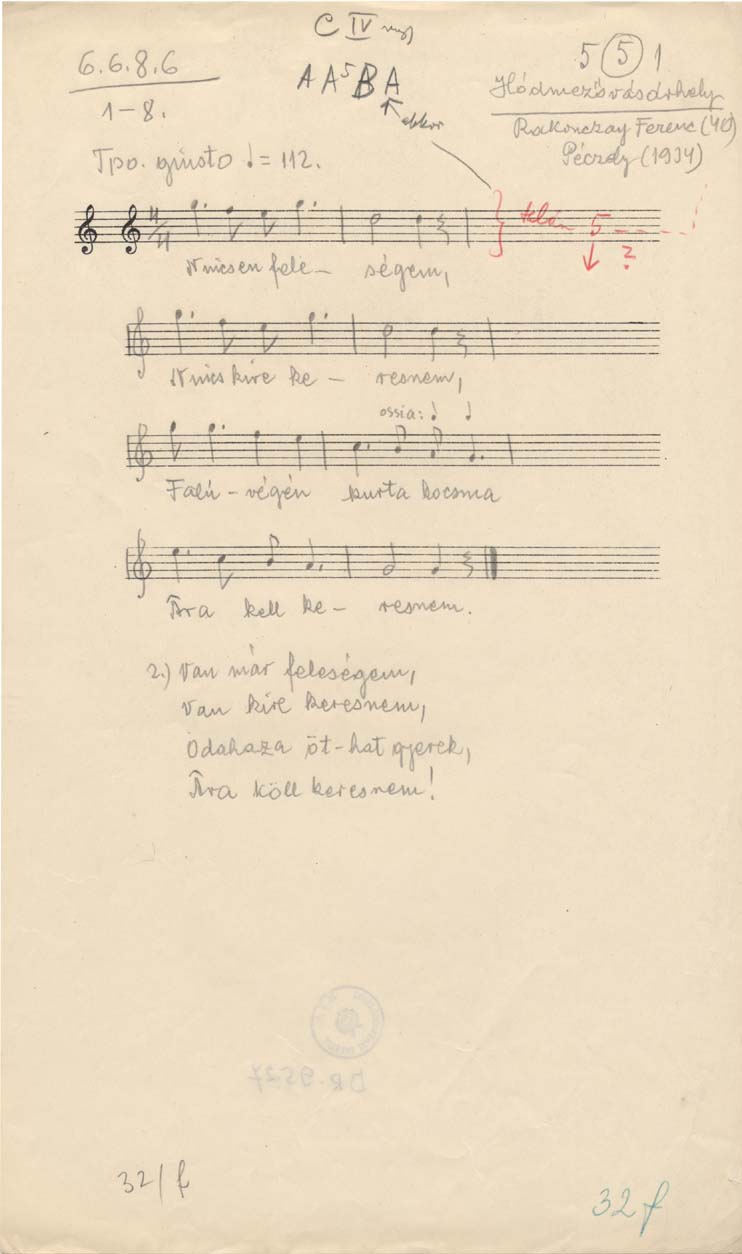 C IV
6.6.8.6
A A⁵ B A
5 5 1
1-8.
ekkor
Hódmezővásárhely
Rakonczay Ferenc (40)
Péczely (1934)
Tpo. giusto ♩ = 112.
4/4
talán 5
?
Nincsen fele- ségem,
Nincs kire ke- resnem,
ossia:
Falu-végén kurta kocsma
Arra kell ke- resnem.
2.) Van már feleségem,
Van kire keresnem,
Odahaza öt-hat gyerek,
Arra köll keresnem!
DR-9527
32/f
32 f